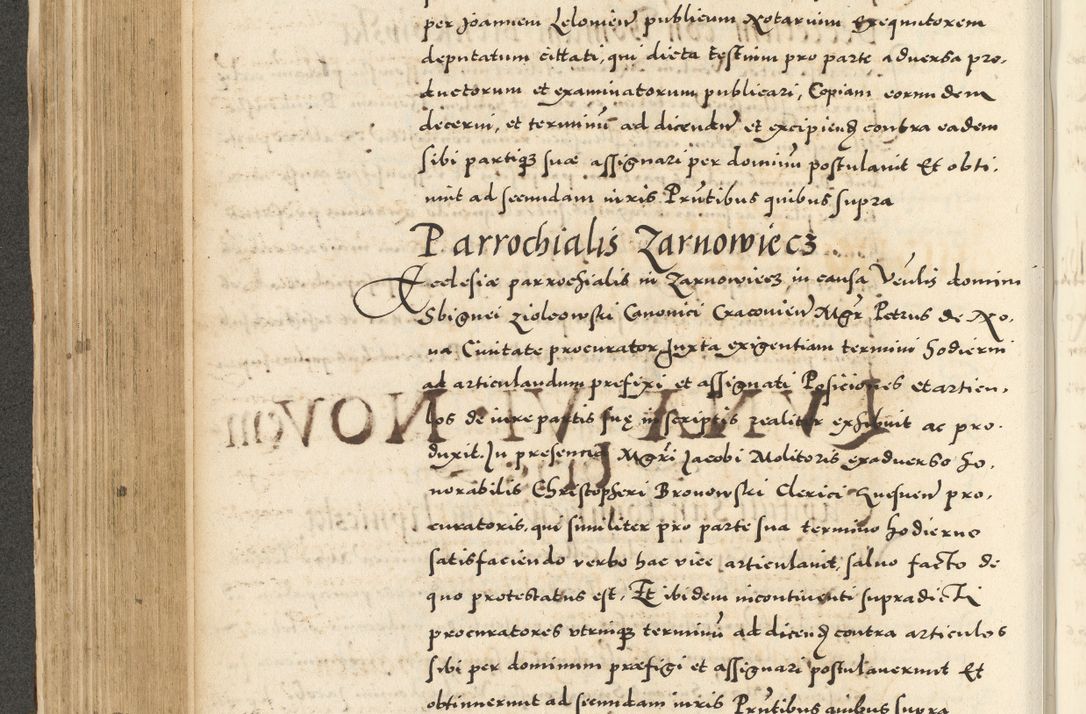 per Joannem Lelouien publicum Notarium exequutorem
deputatum cittati, qui dicta testium pro parte adversa pro-
ductorum et examinatorum publicari, Copiam eorundem
decerni, et terminū ad dicendū et excipiend contra eadem
sibi partiq; suæ assignari per dominū postulavit Et obti-
nuit ad secundam iuris Pn̄tibus quibus supra
Parrochialis Zarnowiecz
Ecclesiæ parrochialis in Zarnowiecz in causa Venlis domini
Sbignei Zioleowski Canonici Cracovien Mgr Petrus de No-
va Civitate procurator Juxta exigentiam termini hodierni
ad articulandum prefixi et assignati Posiciones et articu-
los de iure partis suę in scriptis realiter exhibuit ac pro-
duxit. In presencia Mgr̄i Jacobi Molitoris ex adverso ho-
norabilis Christopheri Bronowski Clerici pro-
curatoris, qui similiter pro parte sua termino hodierno
satisfaciendo verbo hac vice articulavit, salvo facto de
quo protestatus est. Et ibidem incontinenti supradicti
procuratores utriusq; terminū ad dicend contra articulos
sibi per dominum præfigi et assignari postulaverunt Et
obtinuerunt ad secundam iuris Pn̄tibus quibus supra